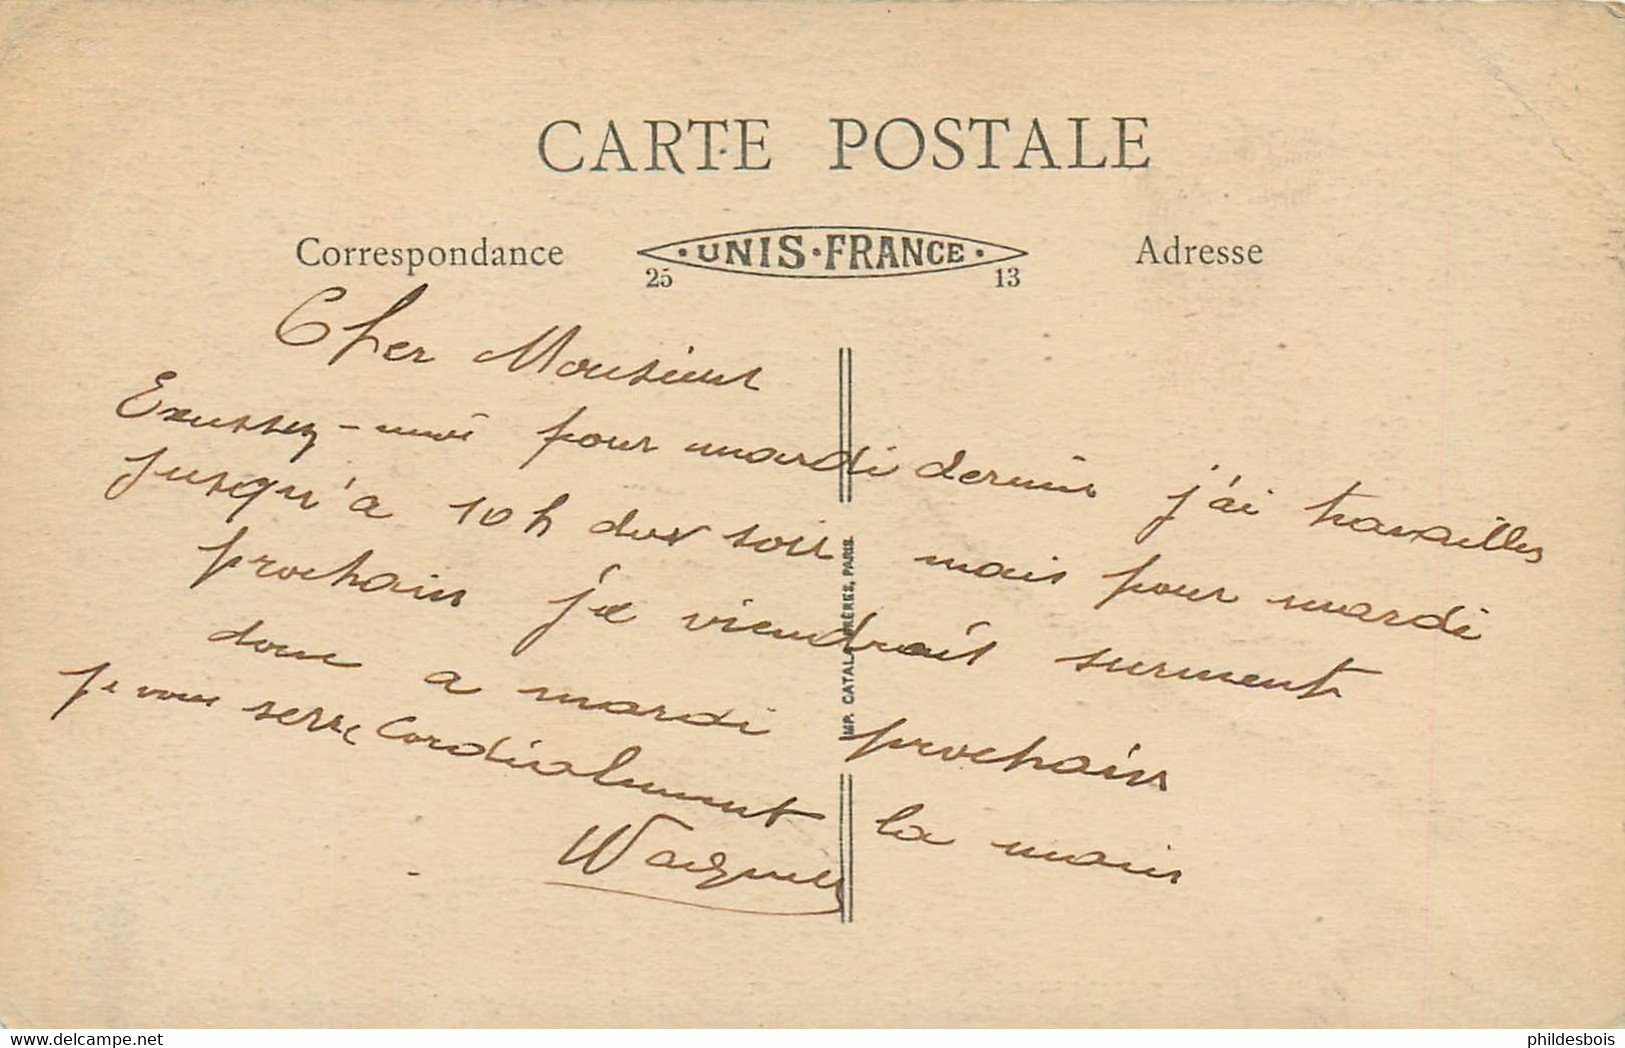 CARTE POSTALE
Correspondance
·UNIS·FRANCE·
25 13
Adresse
Cher Monsieur
Exussez-moi pour mardi dernier j'ai travailles
jusqu'a 10h du soir mais pour mardi
prochain je viendrait surment
donc a mardi prochain
je vous serre Cordialement la main
Wagner
IMP. CATALA FRÈRES, PARIS.
www.delcampe.net
phildesbois